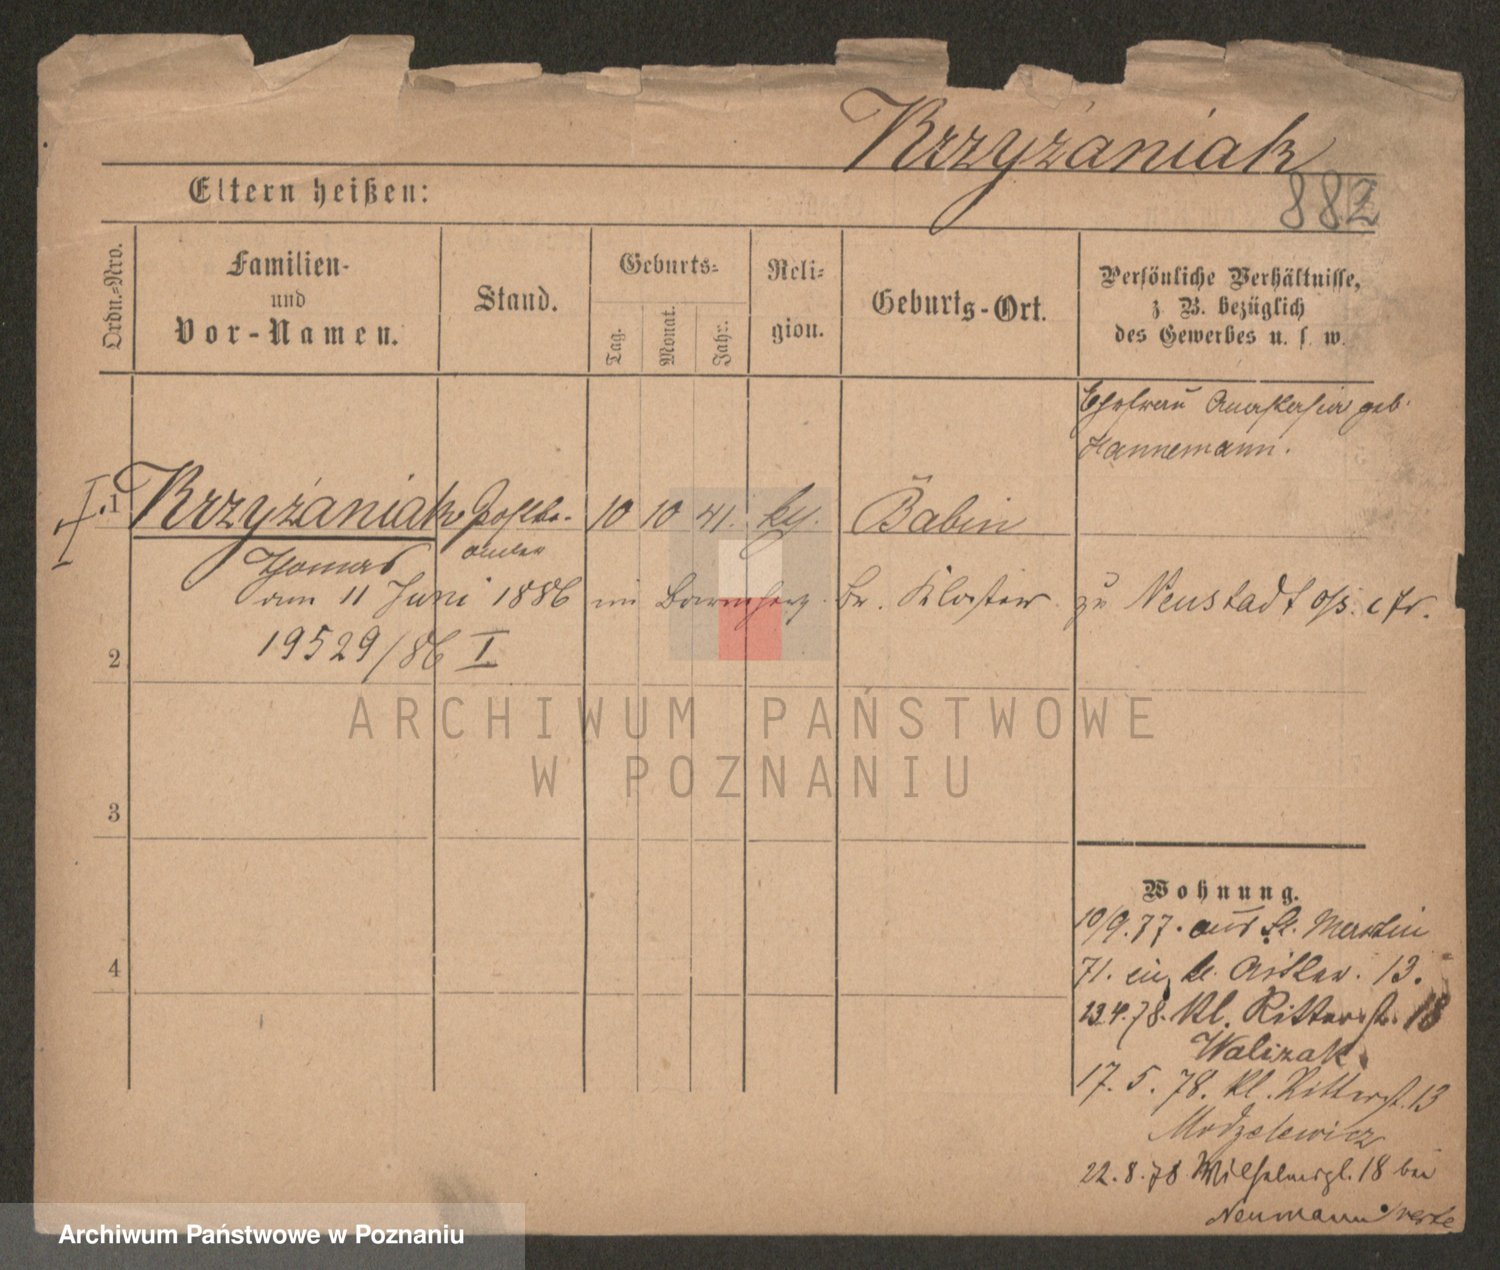 Krzyżaniak
882
Eltern heißen:
Ordn.-Nro.
Familien-
und
Vor-Namen.
Stand.
Geburts-
Tag.
Monat.
Jahr.
Reli-
gion.
Geburts-Ort.
Persönliche Verhältnisse,
z. B. bezüglich
des Gewerbes u. s. w.
Ehefrau Anastasia geb.
Hannemann.
1 Krzyżaniak 10 10 41. Babin
Thomas
am 11 Juni 1886 im Barmherz. Br. Kloster zu Neustadt o/s.
19529/86 I
2
3
4
Wohnung.
10/9.77. aus St. Martin
71. 13.
23.4.78. Kl. Ritterst. 18
Walizak
17.5.78. Kl. Ritterst. 13
Modzelewicz
22.8.78 Wilhelmspl. 18 bei
Neumann
ARCHIWUM PAŃSTWOWE
W POZNANIU
Archiwum Państwowe w Poznaniu